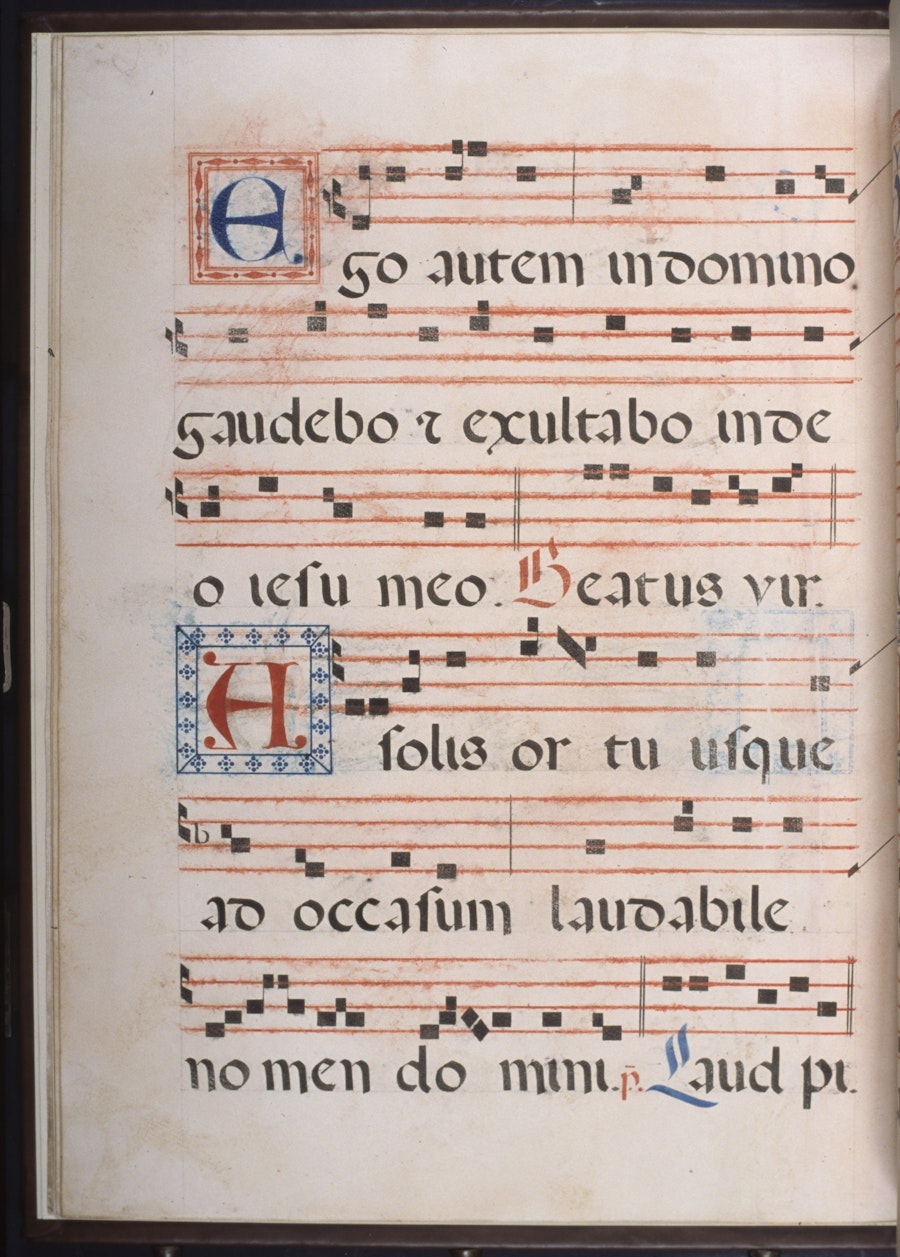 Ego autem in domino
gaudebo ⁊ exultabo in de
o ieſu meo. Beatus vir.
A ſolis or tu uſque
ad occaſum laudabile
no men do mini. p̄. Laud pi.